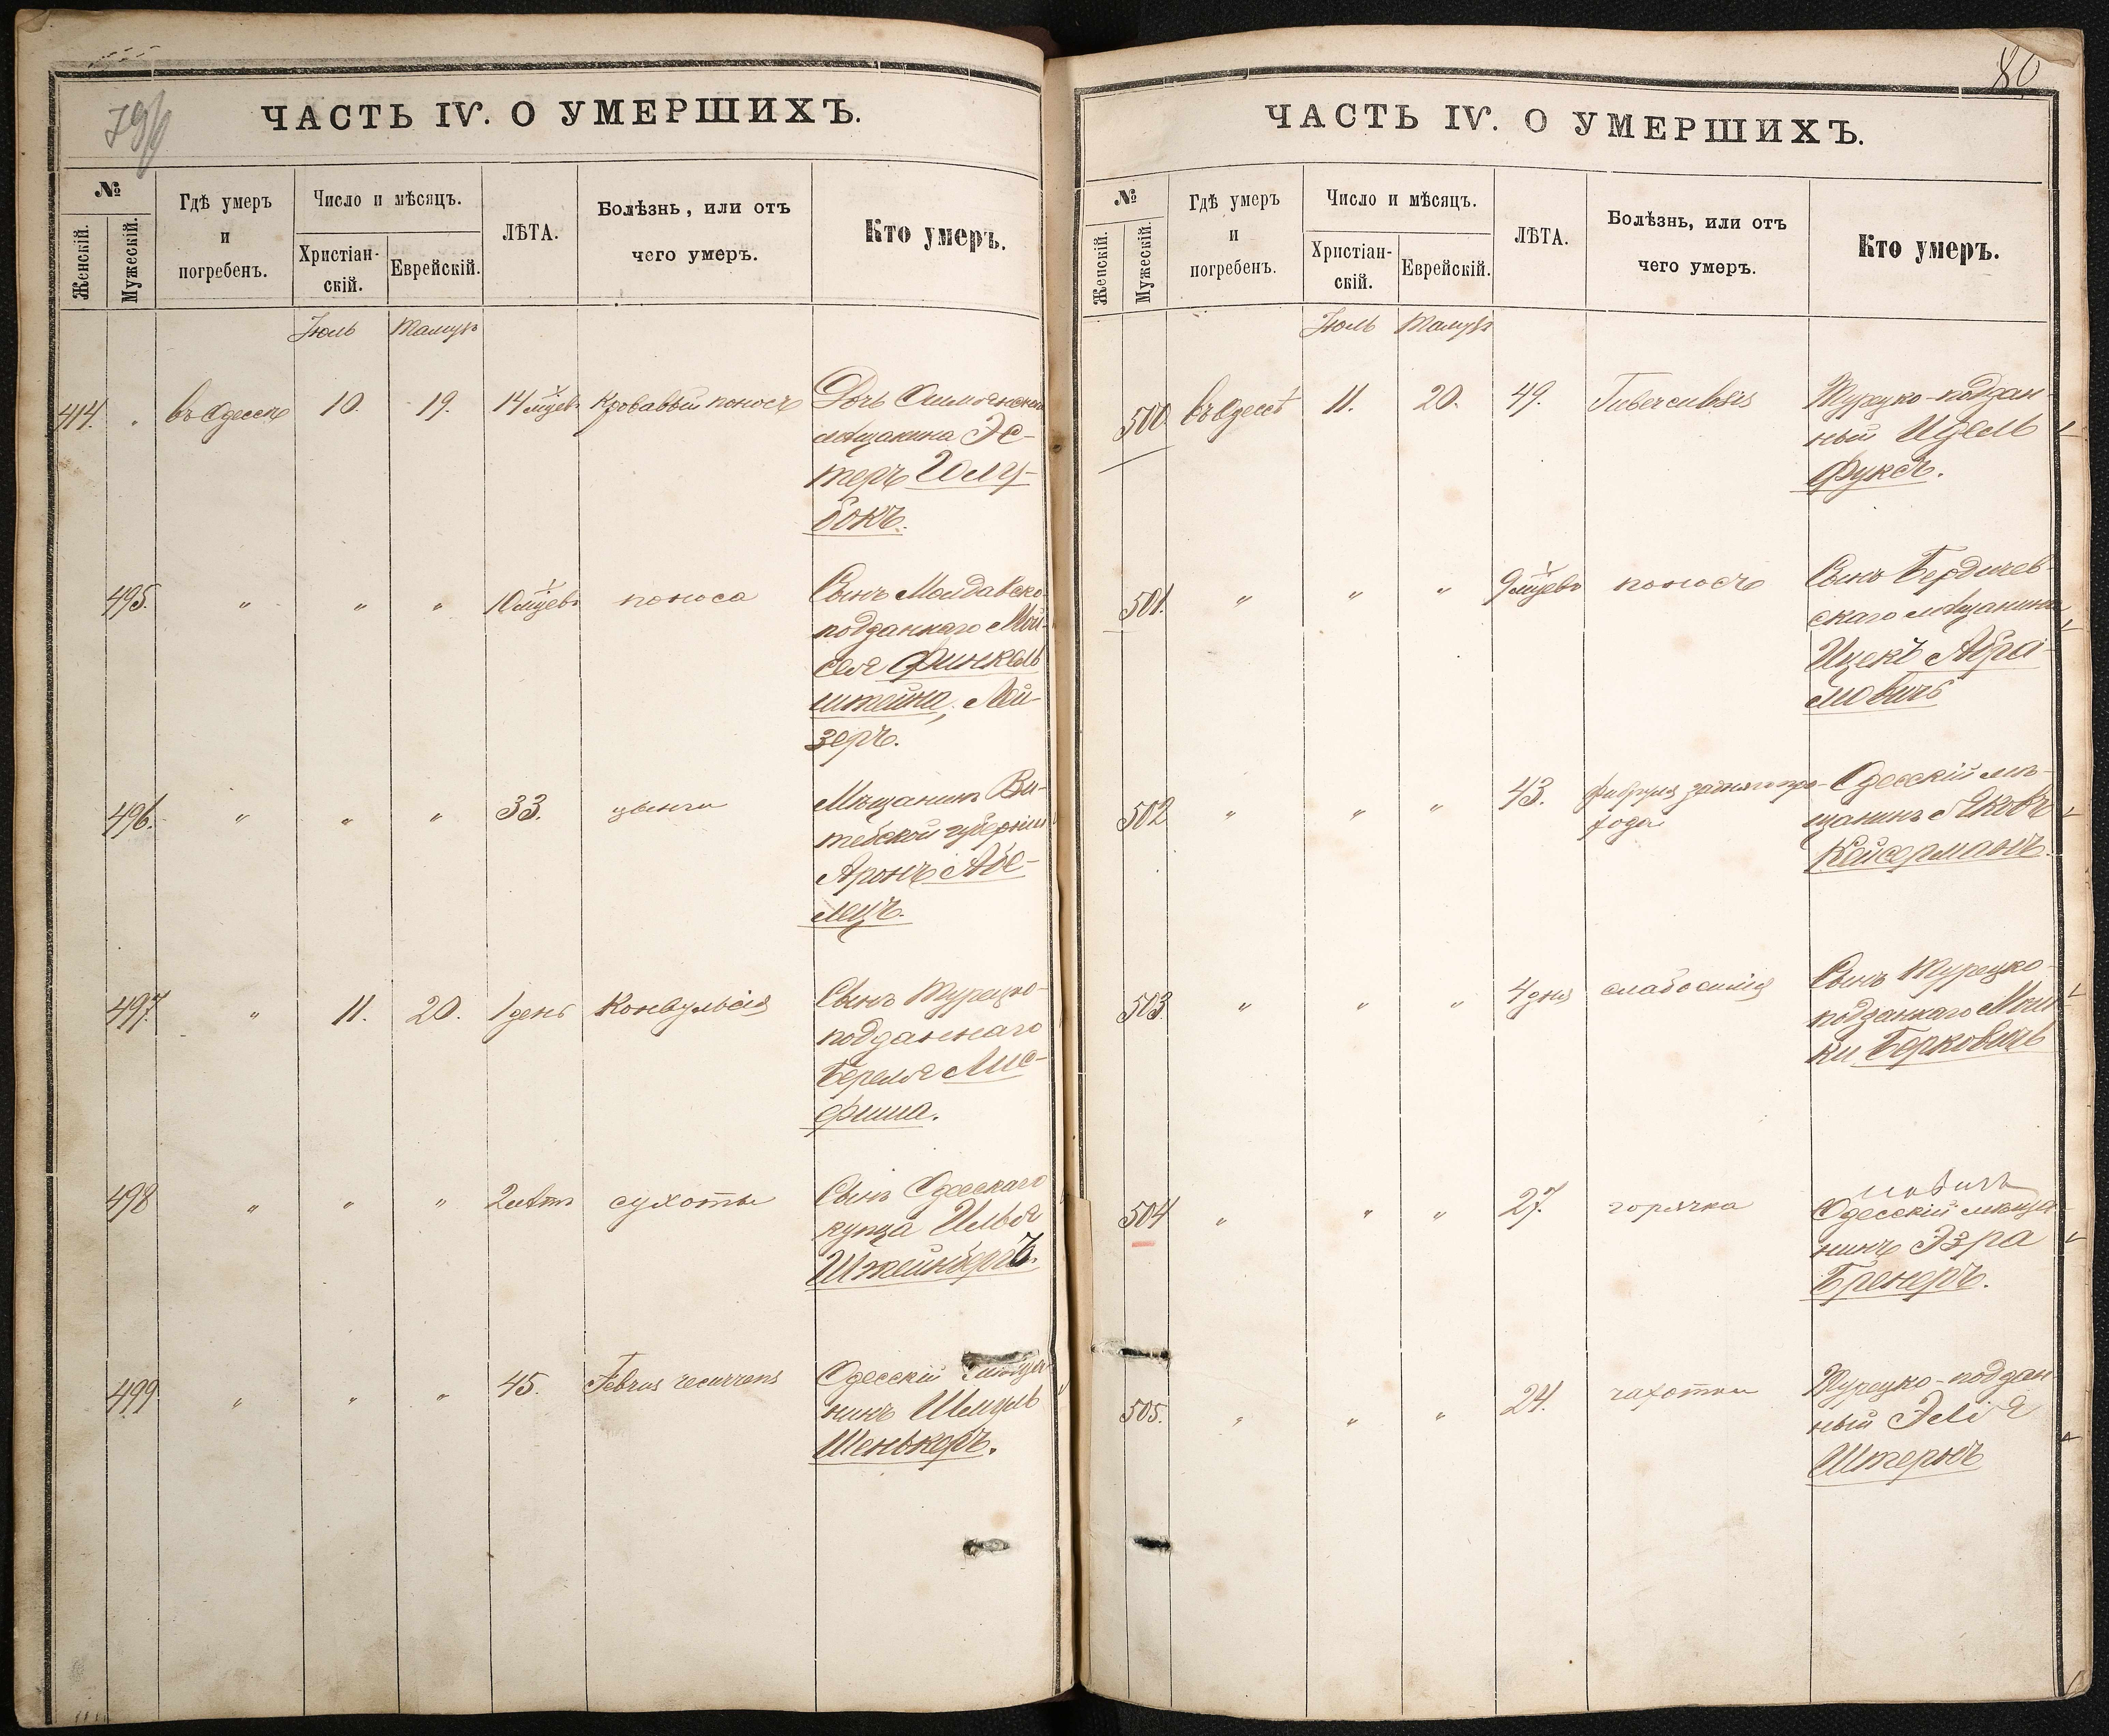 79
ЧАСТЬ IV. О УМЕРШИХЪ.
№
Женскій.
Мужескій.
Гдѣ умеръ
и
погребенъ.
Число и мѣсяцъ.
Христіан-
скій.
Еврейскій.
ЛѢТА.
Болѣзнь, или отъ
чего умеръ.
Кто умеръ.
Іюль Тамузъ
414. " въ Одессѣ 10. 19. 14 мцевъ Кровавый поносъ Дочь
мѣщанина Эс-
теръ Голу-
бокъ.
495. " " " 10 мцевъ поноса Сынъ Молдавско-
подданнаго Мой-
сея Финкель
штейна, Лей-
зеръ.
496. " " " 33. цынги Мѣщанинъ Ви-
тебской губерніи
Аронъ Абе-
лецъ.
497. " 11. 20. 1 день Конвульсія Сынъ Турецко-
подданнаго
Береля Лис-
фиша.
498 " " " 2 лѣтъ сухоты Сынъ Одесскаго
купца Ильи
Штейнбергъ.
499. " " " 45. Februs recurrens Одесскій мѣща-
нинъ Шмуль
Шенькеръ.
80
ЧАСТЬ IV. О УМЕРШИХЪ.
№
Женскій.
Мужескій.
Гдѣ умеръ
и
погребенъ.
Число и мѣсяцъ.
Христіан-
скій.
Еврейскій.
ЛѢТА.
Болѣзнь, или отъ
чего умеръ.
Кто умеръ.
Іюль Тамузъ
500. въ Одессѣ 11. 20. 49. Tuberculosis Турецко-поддан-
ный Идель
Фуксъ.
501. " " " 9 мцевъ поносъ Сынъ Бердичев-
скаго мѣщанина
Ицекъ Абра-
мовичъ
502 " " " 43. задняго про-
хода Одесскій мѣ-
щанинъ Яковъ
Кейсерманъ.
503. " " " 4 дня слабосилія Сынъ Турецко-
подданнаго Мош-
ки Берковичъ
504 " " " 27. горячка Одесскій мѣща-
нинъ Эзра
Бренеръ.
505. " " " 24. чахотки Турецко-поддан
ный Элія
Штернъ